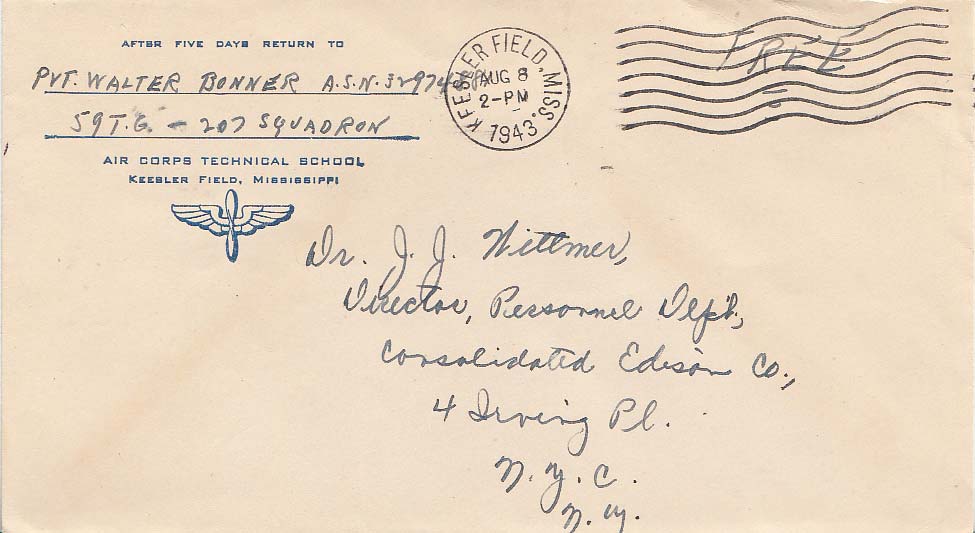 AFTER FIVE DAYS RETURN TO
PVT. WALTER BONNER A.S.N. 32974
59 T.G. - 207 SQUADRON
AIR CORPS TECHNICAL SCHOOL
KEESLER FIELD, MISSISSIPPI
KEESLER FIELD, MISS.
AUG 8
2-PM
1943
FREE
Dr. J. J. Wittmer,
Director, Personnel Dept.,
Consolidated Edison Co.,
4 Irving Pl.
N. Y. C.
N. Y.